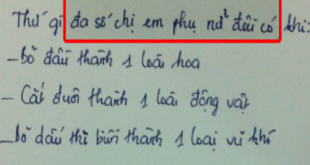 Thứ gì đa số chị em phụ nữ đều có khi:
- bỏ đầu thành 1 loài hoa
- Cắt đuôi thành 1 loài động vật
- bỏ dấu thì biến thành 1 loại vũ khí